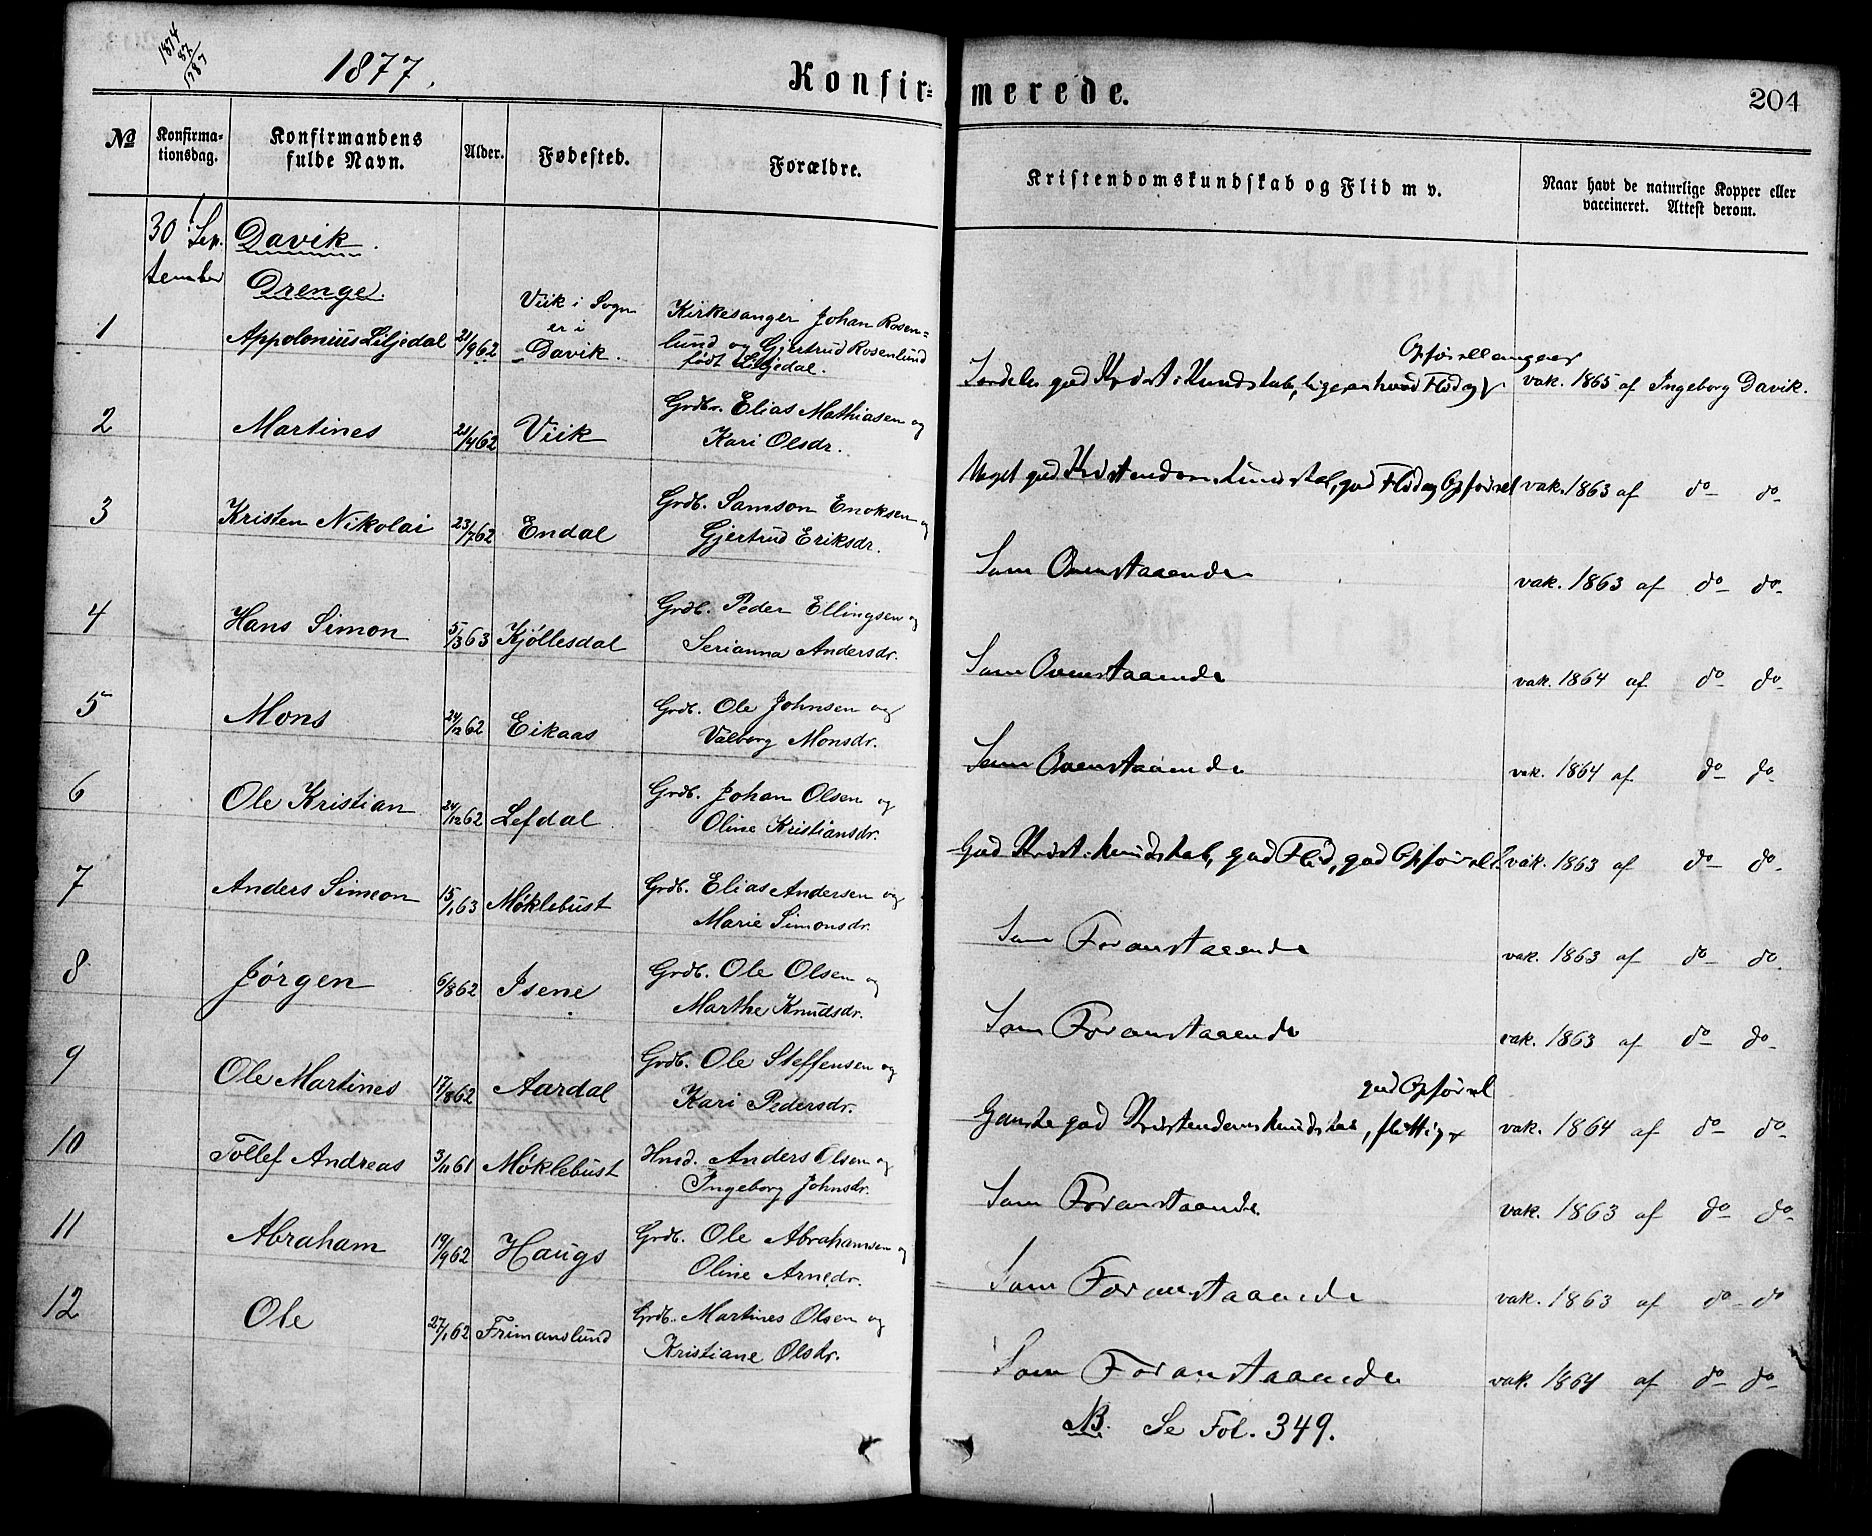 1874
87
1787
1877.
Konfir=
merede.
204
No
Konfirma-
tionsdag.
Konfirmandens
fulde Navn.
Alder.
Fødested.
Forældre.
Kristendomskundskab og Flid m v.
Naar havt de naturlige Kopper eller
vaccineret. Attest derom.
30 Sep.
tember
Davik.
Drenge.
1 Appolonius Liljedal 21/9 62 Viik i Sogn er i Davik. Kirkesanger Johan Rosen=
lund og Gjertrud Rosenlund
født Liljedal.
Opførsel
Særdeles god Krist. Kundskab, Flid og vak. 1865 af Ingeborg Davik.
2 Martines 21/4 62 Viik Grdbr. Elias Mathiasen og
Kari Olsdr.
Meget god Kristendomskundskab, god Flid og Opførsel vak. 1863 af do do
3 Kristen Nikolai 23/7 62 Endal Grdb. Samson Enoksen og
Gjertrud Eriksdr.
Som Ovenstaaende vak. 1863 af do do
4 Hans Simon 5/3 63 Kjöllesdal Grdb. Peder Ellingsen og
Serianna Andersdr.
Som Ovenstaaende vak. 1864 af do do
5 Mons 24/12 62 Eikaas Grdb. Ole Johnsen og
Valborg Monsdr.
Som Ovenstaaende vak. 1864 af do do
6 Ole Kristian 24/12 62 Lefdal Grdb. Johan Olsen og
Oline Kristiansdr.
God Krist. kundskab, god Flid, god Opførsel vak. 1863 af do do
7 Anders Simeon 15/1 63 Møklebust Grdb. Elias Andersen og
Marie Simonsdr.
Som Foranstaaende vak. 1863 af do do
8 Jørgen 6/8 62 Isene Grdb. Ole Olsen og
Marthe Knudsdr.
Som Foranstaaende vak. 1863 af do do
9 Ole Martines 17/8 62 Aardal Grdb. Ole Steffensen og
Kari Pedersdr.
god Opførsel
Ganske god Kristendomskundskab, flittig vak. 1864 af do do
10 Tollef Andreas 3/11 61 Møklebust Hmd. Anders Olsen og
Ingeborg Johnsdr.
Som Foranstaaende vak. 1863 af do do
11 Abraham 19/9 62 Haugs Grdb. Ole Abrahamsen og
Oline Arnedr.
Som Foranstaaende vak. 1863 af do do
12 Ole 27/1 62 Frimanslund Grdb. Martines Olsen og
Kristiane Olsdr.
Som Foranstaaende vak. 1864 af do do
NB. Se Fol. 349.